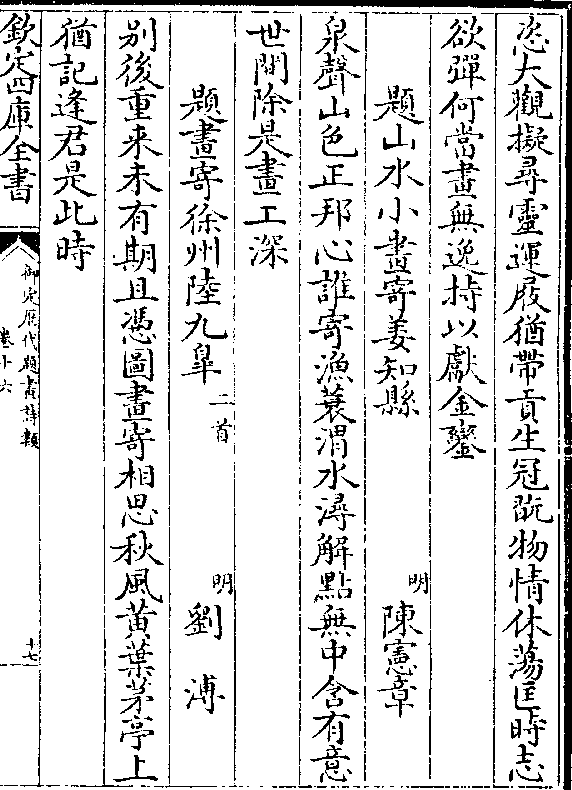 恣大觀擬尋靈運屐猶帶貢生冠翫物情休蕩匡時志
欲彈何當畫無逸持以獻金鑾
題山水小畫寄姜知縣
明 陳憲章
泉聲山色正邦心誰寄漁蓑渭水潯解點無中含有意
世間除是畫工深
題畫寄徐州陸九臯 二首
明 劉溥
别後重来未有期且憑圖畫寄相思秋風黃葉茅亭上
猶記逢君是此時
欽定四庫全書
御定歷代題畫詩類
卷十六
十七